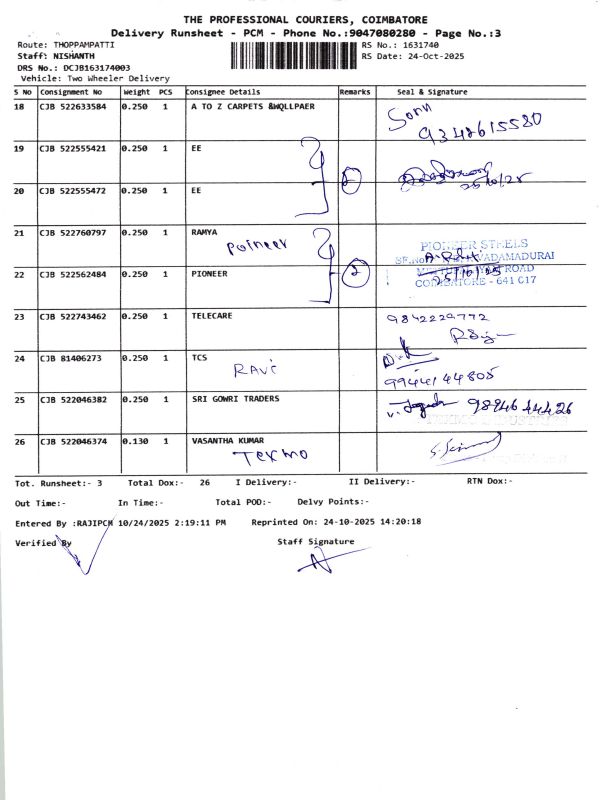 THE PROFESSIONAL COURIERS, COIMBATORE
Delivery Runsheet - PCM - Phone No.:9047080280 - Page No.:3
Route: THOPPAMPATTI RS No.: 1631740
Staff: NISHANTH RS Date: 24-Oct-2025
DRS No.: DCJB163174003
Vehicle: Two Wheeler Delivery
S No Consignment No Weight PCS Consignee Details Remarks Seal & Signature
18 CJB 522633584 0.250 1 A TO Z CARPETS &WOLLPAER
Sonu
9342615580
19 CJB 522555421 0.250 1 EE
2
25/10/25
20 CJB 522555472 0.250 1 EE
21 CJB 522760797 0.250 1 RAMYA
Poineer
PIONEER STEELS
22 CJB 522562484 0.250 1 PIONEER 2
25/10/25 ROAD
COIMBATORE - 641 017
23 CJB 522743462 0.250 1 TELECARE 9842229772
24 CJB 81406273 0.250 1 TCS
RAVi
9944144805
25 CJB 522046382 0.250 1 SRI GOWRI TRADERS 9894644426
26 CJB 522046374 0.130 1 VASANTHA KUMAR
Texmo
Tot. Runsheet:- 3 Total Dox:- 26 I Delivery:- II Delivery:- RTN Dox:-
Out Time:- In Time:- Total POD:- Delvy Points:-
Entered By :RAJIPCM 10/24/2025 2:19:11 PM Reprinted On: 24-10-2025 14:20:18
Verified By Staff Signature